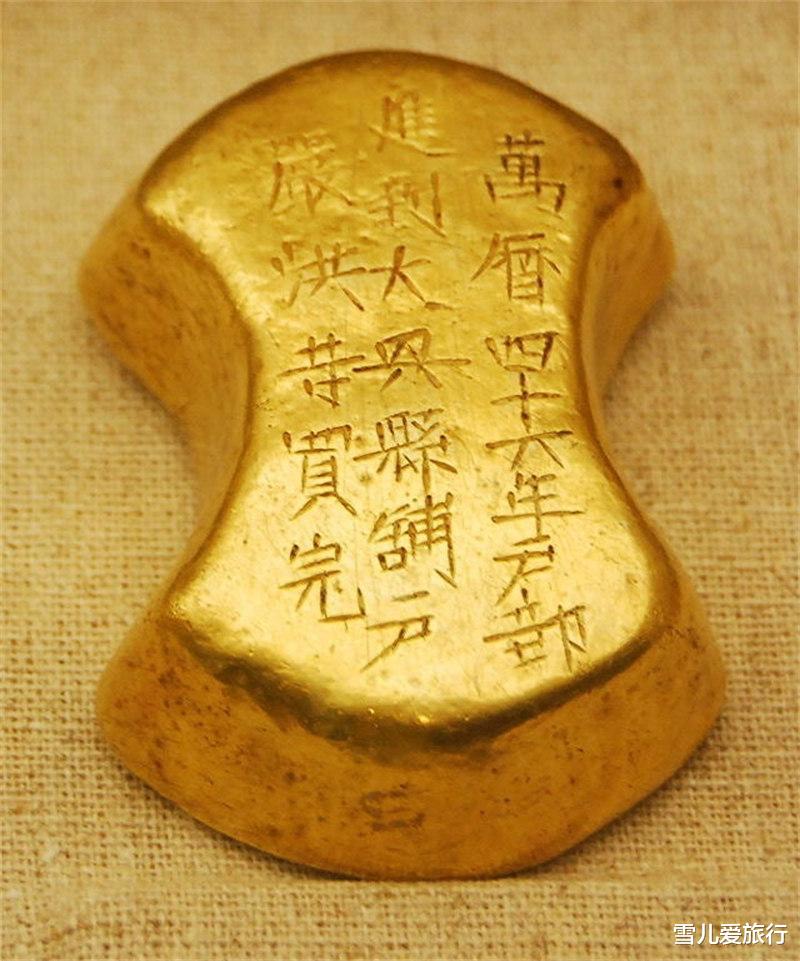 萬曆四十六年戶部
進到大興縣鋪戶
嚴洪等買完
雪儿爱旅行